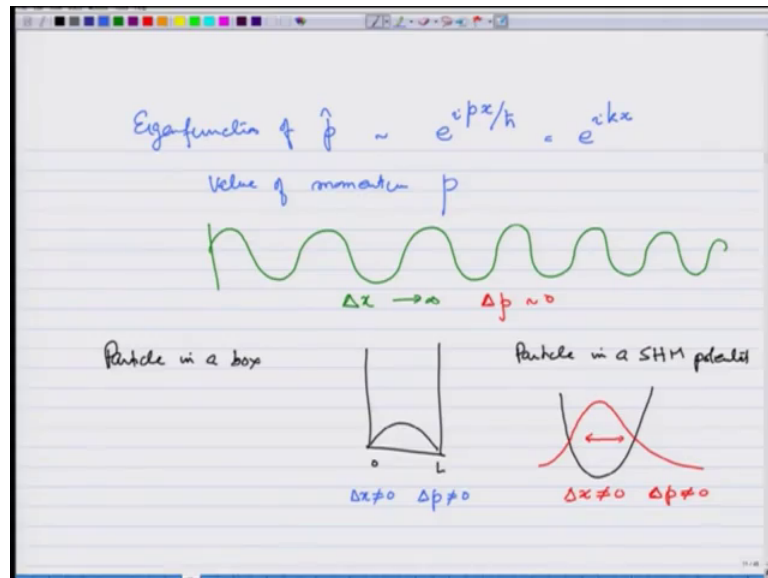 Eigenfunction of p̂ ~ e^{ipx/ħ} = e^{ikx}
Value of momentum p
Δx → ∞ Δp ~ 0
Particle in a box
Particle in a SHM potential
0 L
Δx≠0 Δp≠0
Δx≠0 Δp≠0